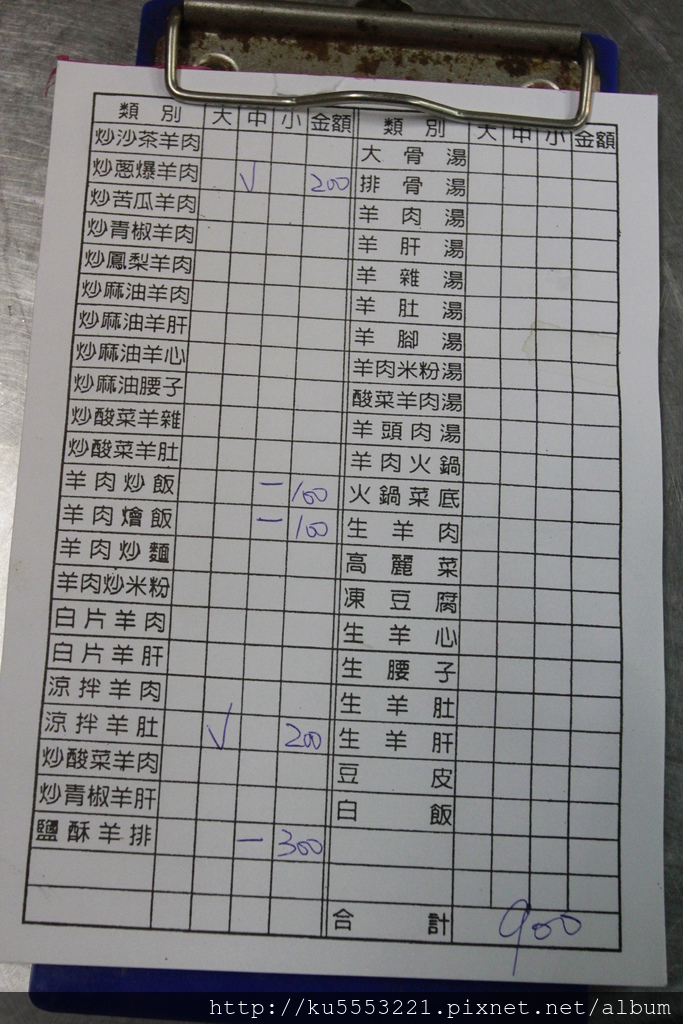 類別 大 中 小 金額
炒沙茶羊肉
炒蔥爆羊肉 √ 200
炒苦瓜羊肉
炒青椒羊肉
炒鳳梨羊肉
炒麻油羊肉
炒麻油羊肝
炒麻油羊心
炒麻油腰子
炒酸菜羊雜
炒酸菜羊肚
羊肉炒飯 一 100
羊肉燴飯 一 100
羊肉炒麵
羊肉炒米粉
白片羊肉
白片羊肝
涼拌羊肉
涼拌羊肚 √ 200
炒酸菜羊肉
炒青椒羊肝
鹽酥羊排 一 300
類別 大 中 小 金額
大骨湯
排骨湯
羊肉湯
羊肝湯
羊雜湯
羊肚湯
羊腳湯
羊肉米粉湯
酸菜羊肉湯
羊頭肉湯
羊肉火鍋
火鍋菜底
生羊肉
高麗菜
凍豆腐
生羊心
生腰子
生羊肚
生羊肝
豆皮
白飯
合計 900
http://ku5553221.pixnet.net/album